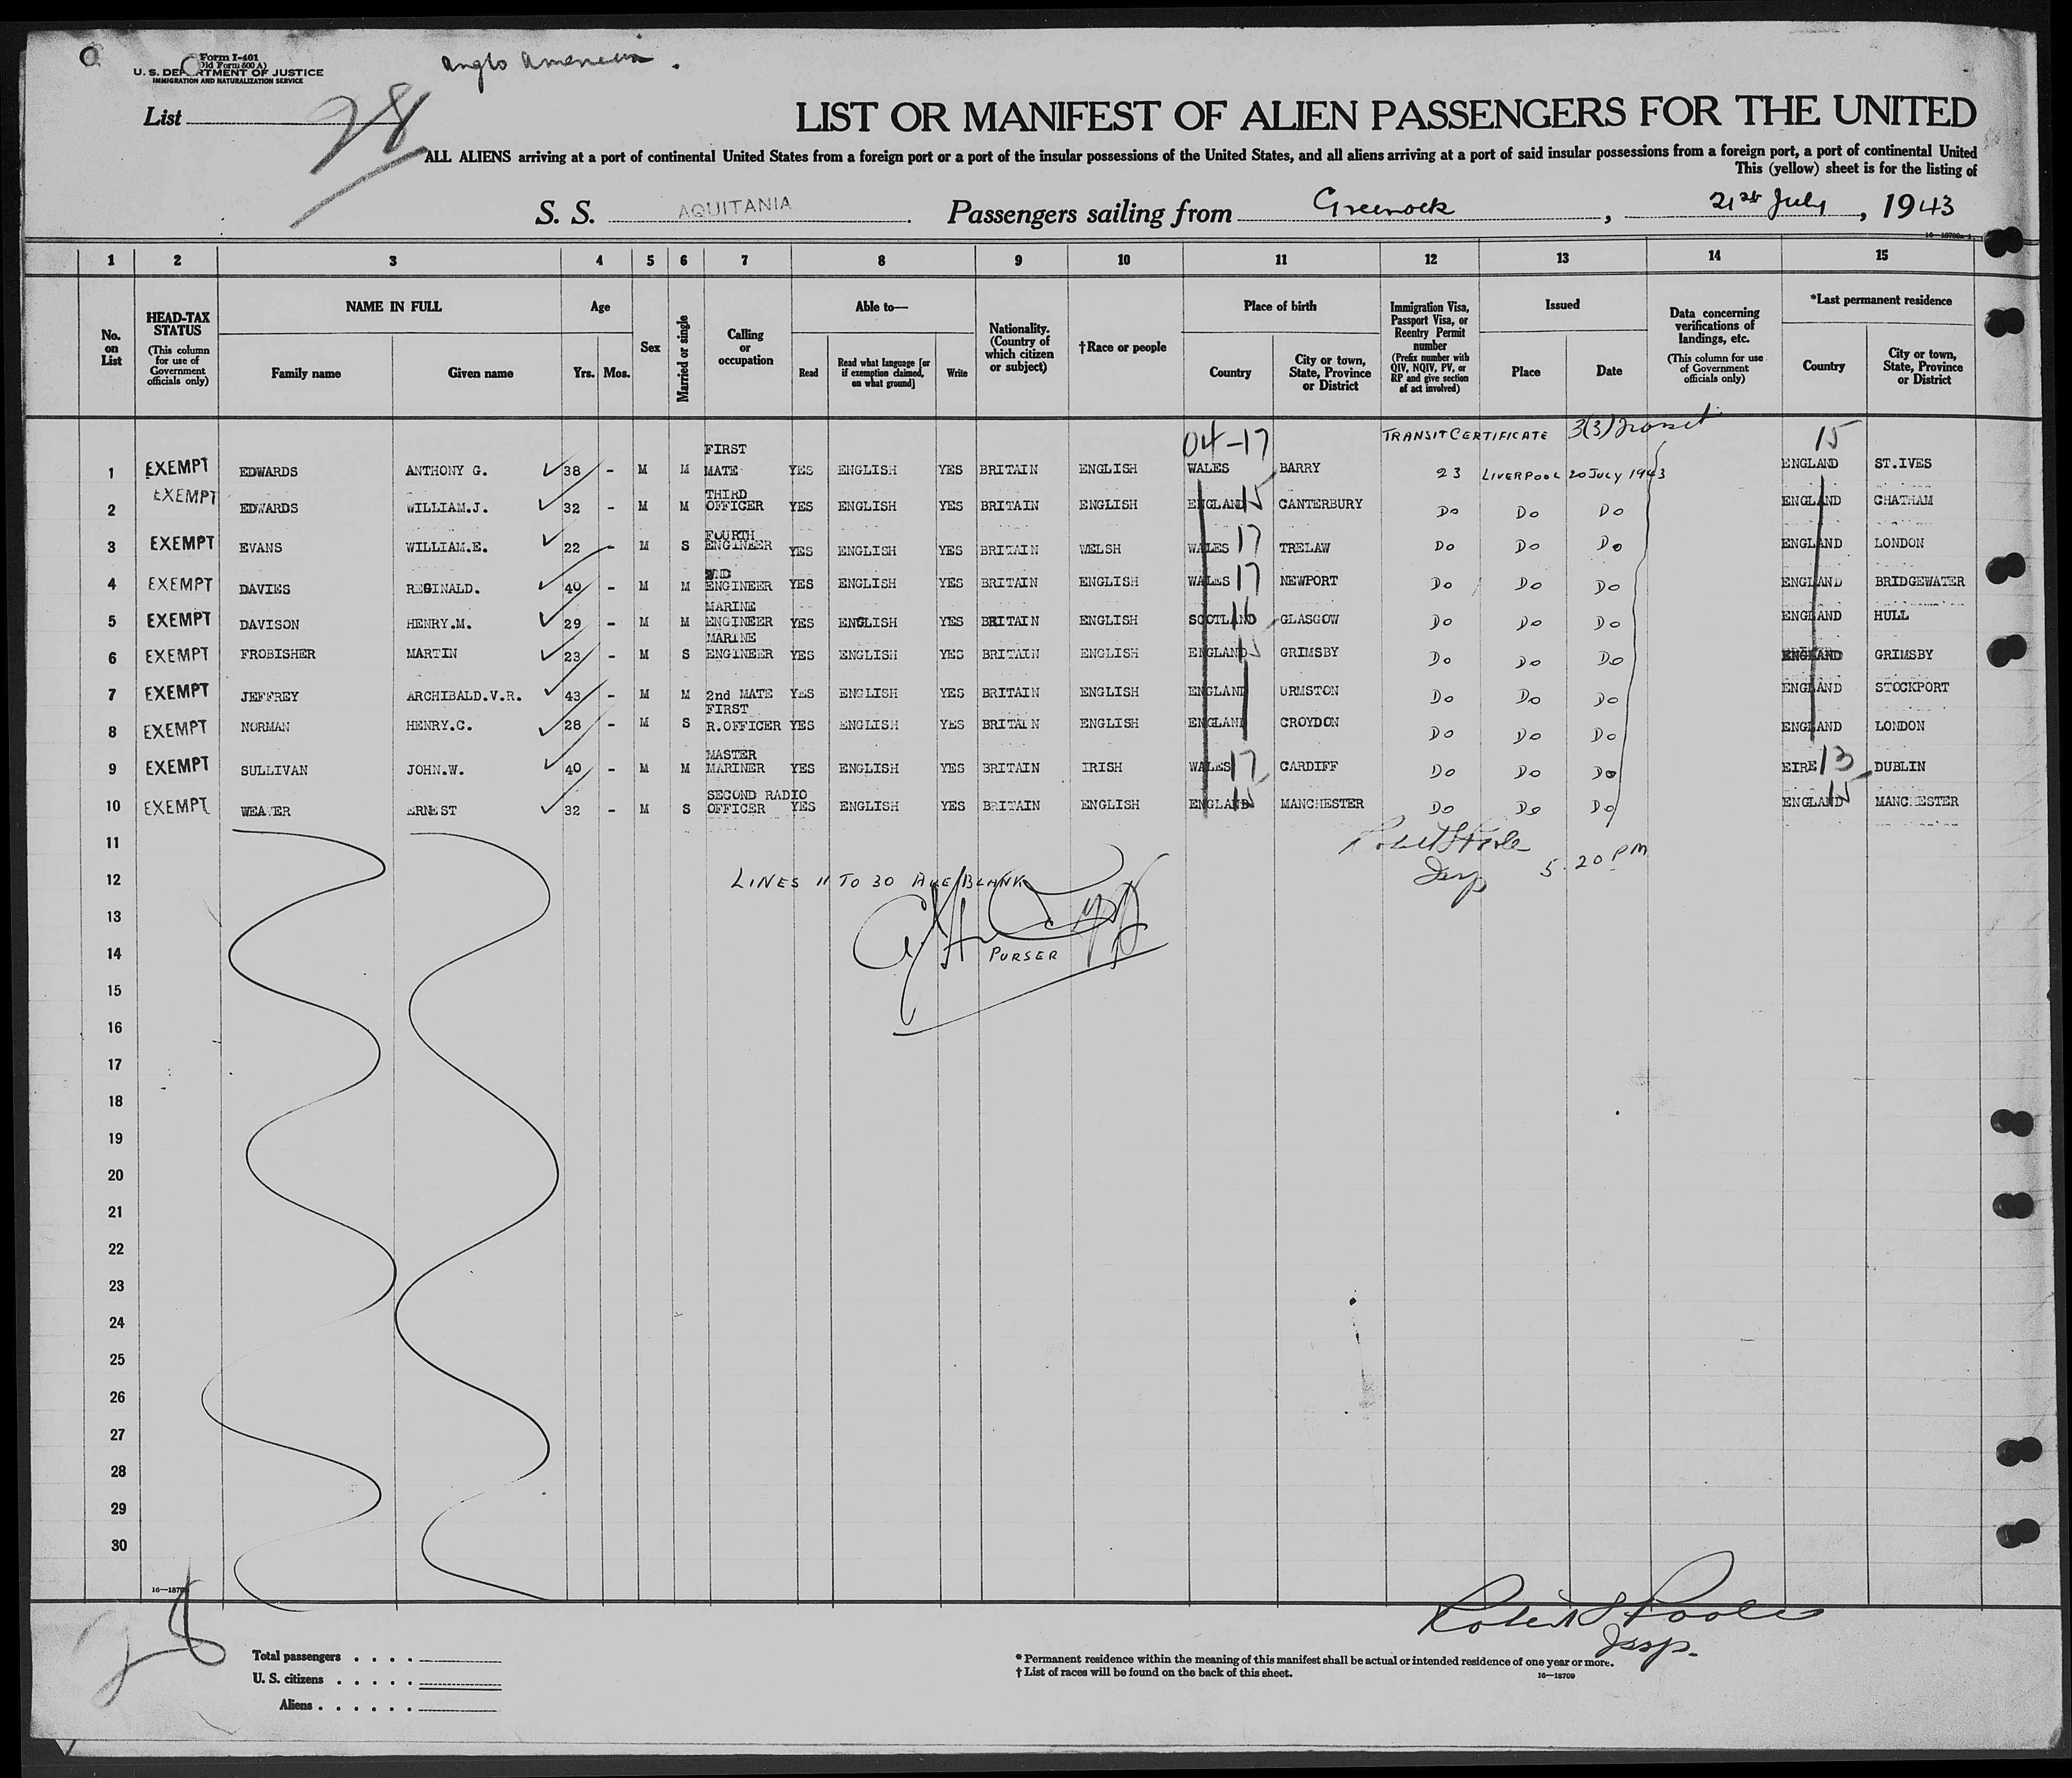 Form I-401
(Old Form 500 A)
U. S. DEPARTMENT OF JUSTICE
IMMIGRATION AND NATURALIZATION SERVICE
Anglo American.
List 28
LIST OR MANIFEST OF ALIEN PASSENGERS FOR THE UNITED
ALL ALIENS arriving at a port of continental United States from a foreign port or a port of the insular possessions of the United States, and all aliens arriving at a port of said insular possessions from a foreign port, a port of continental United
This (yellow) sheet is for the listing of
S. S. AQUITANIA. Passengers sailing from Greenock, 21st July, 1943
1 2 3 4 5 6 7 8 9 10 11 12 13 14 15
No. on List
HEAD-TAX STATUS (This column for use of Government officials only)
NAME IN FULL Family name Given name
Age Yrs. Mos.
Sex
Married or single
Calling or occupation
Able to— Read Read what language [or if exemption claimed, on what ground] Write
Nationality. (Country of which citizen or subject)
†Race or people
Place of birth Country City or town, State, Province or District
Immigration Visa, Passport Visa, or Reentry Permit number (Prefix number with QIV, NQIV, PV, or RP and give section of act involved)
Issued Place Date
Data concerning verifications of landings, etc. (This column for use of Government officials only)
*Last permanent residence Country City or town, State, Province or District
04-17 TRANSIT CERTIFICATE 3(3) Transit 15
1 EXEMPT EDWARDS ANTHONY G. 38 - M M FIRST MATE YES ENGLISH YES BRITAIN ENGLISH WALES BARRY 23 LIVERPOOL 20 JULY 1943 ENGLAND ST.IVES
2 EXEMPT EDWARDS WILLIAM.J. 32 - M M THIRD OFFICER YES ENGLISH YES BRITAIN ENGLISH ENGLAND 15 CANTERBURY Do Do Do ENGLAND CHATHAM
3 EXEMPT EVANS WILLIAM.E. 22 - M S FOURTH ENGINEER YES ENGLISH YES BRITAIN WELSH WALES 17 TRELAW Do Do Do ENGLAND LONDON
4 EXEMPT DAVIES REGINALD. 40 - M M ENGINEER YES ENGLISH YES BRITAIN ENGLISH WALES 17 NEWPORT Do Do Do ENGLAND BRIDGEWATER
5 EXEMPT DAVISON HENRY.M. 29 - M M MARINE ENGINEER YES ENGLISH YES BRITAIN ENGLISH SCOTLAND 16 GLASGOW Do Do Do ENGLAND HULL
6 EXEMPT FROBISHER MARTIN 23 - M S MARINE ENGINEER YES ENGLISH YES BRITAIN ENGLISH ENGLAND 15 GRIMSBY Do Do Do ENGLAND GRIMSBY
7 EXEMPT JEFFREY ARCHIBALD.V.R. 43 - M M 2nd MATE YES ENGLISH YES BRITAIN ENGLISH ENGLAND URMSTON Do Do Do ENGLAND STOCKPORT
8 EXEMPT NORMAN HENRY.C. 28 - M S FIRST R.OFFICER YES ENGLISH YES BRITAIN ENGLISH ENGLAND CROYDON Do Do Do ENGLAND LONDON
9 EXEMPT SULLIVAN JOHN.W. 40 - M M MASTER MARINER YES ENGLISH YES BRITAIN IRISH WALES 17 CARDIFF Do Do Do EIRE 13 DUBLIN
10 EXEMPT WEAVER ERNEST 32 - M S SECOND RADIO OFFICER YES ENGLISH YES BRITAIN ENGLISH ENGLAND 15 MANCHESTER Do Do Do ENGLAND 15 MANCHESTER
11
Robert S Poole
Insp 5.20 PM
12 LINES 11 TO 30 ARE BLANK
13
14 PURSER
15
16
17
18
19
20
21
22
23
24
25
26
27
28
29
30
16—18709
28
Robert S Poole
Insp.
Total passengers . . . .
U. S. citizens . . . . .
Aliens . . . . . .
* Permanent residence within the meaning of this manifest shall be actual or intended residence of one year or more.
† List of races will be found on the back of this sheet.
16—18709